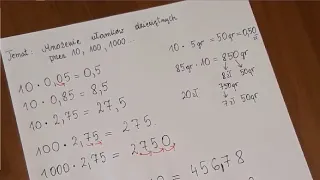 Temat: Mnożenie ułamków dziesiętnych
przez 10, 100, 1000.
10 · 0,05 = 0,5
10 · 0,85 = 8,5
10 · 2,75 = 27,5
100 · 2,75 = 275.
1000 · 2,75 = 2750,
= 45678
10 · 5gr = 50gr = 0,50 zł
85gr · 10 = 850gr
8zł 50gr
20zł
750gr
7zł 50gr